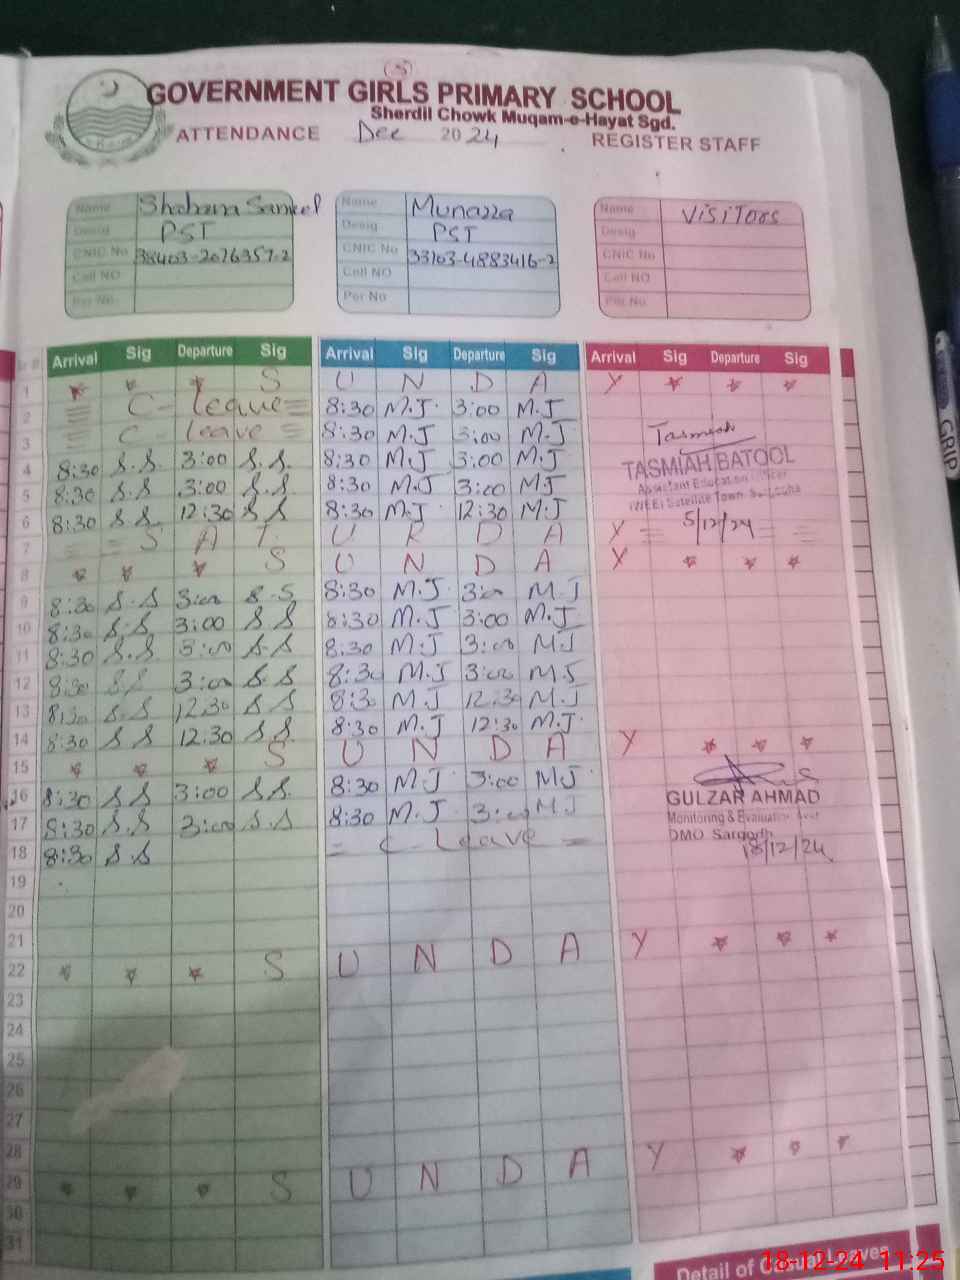 (5)
GOVERNMENT GIRLS PRIMARY SCHOOL
Sherdil Chowk Muqam-e-Hayat Sgd.
ATTENDANCE Dec 2024 REGISTER STAFF
Name Shabana Sameel Name Munazza Name VISITORS
Desig PST Desig PST Desig
CNIC No 38403-2076357-2 CNIC No 33103-4883416-2 CNIC No
Cell NO Cell NO Cell NO
Per No Per No Per No
Arrival Sig Departure Sig Arrival Sig Departure Sig Arrival Sig Departure Sig
1 * * * S U N D A Y * * *
2 C- leave 8:30 M.J 3:00 M.J
3 C- leave 8:30 M.J 3:00 M.J Tasmiah
4 8:30 S.S. 3:00 S.S. 8:30 M.J 3:00 M.J TASMIAH BATOOL
5 8:30 S.S 3:00 S.S 8:30 M.J 3:00 MJ Assistant Education Officer
6 8:30 S.S 12:30 S.S 8:30 M.J 12:30 M.J (WEE) Satellite Town
5/12/24
7 = = S A T U R D A Y = =
8 * * * S U N D A Y * * *
9 8:30 S.S 3:00 S.S 8:30 M.J 3:00 M.J
10 8:30 S.S 3:00 S S 8:30 M.J 3:00 M.J
11 8:30 S.S 3:00 S.S 8:30 M.J 3:00 M.J
12 8:30 S.S 3:00 S.S 8:30 M.J 3:00 M.J
13 8:30 S.S 12:30 S S 8:30 M.J 12:30 M.J
14 8:30 S S 12:30 S.S. 8:30 M.J 12:30 M.J.
15 * * * S U N D A Y * * *
16 8:30 S S 3:00 S.S. 8:30 M.J 3:00 MJ
GULZAR AHMAD
17 8:30 S.S 3:00 S.S 8:30 M.J 3:00 MJ Monitoring & Evaluation
18 8:30 S.S = C- Leave = DMO Sargodh
18/12/24
19
20
21
22 * * * S U N D A Y * * *
23
24
25
26
27
28
29 * * * S U N D A Y * * *
30
31
Detail of Leaves
18-12-24 11:25
GRIP